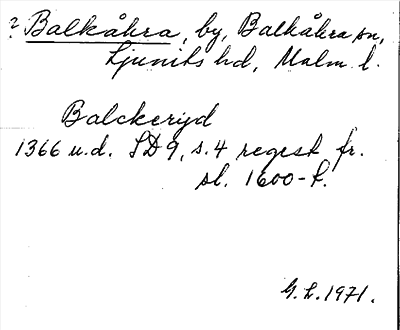 ? Balkåkra, by, Balkåkra sn,
Ljunits hd, Malm. l.
Balckeryd
1366 u.d. SD 9, s. 4 regest fr.
sl. 1600-t.
G. L. 1971.